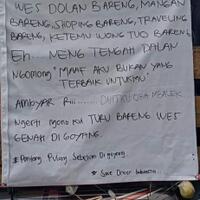 WES DOLAN BARENG, MANGAN
BARENG, SHOPING BARENG, TRAVELING
BARENG, KETEMU WONG TUO BARENG
Eh... NENG TENGAH DALAN
NGOMONG " MAAF AKU BUKAN YANG
TERBAIK UNTUKMU"
AMBYAR
NGERTI MONO KU TURU BARENG WES
GENAH DI GOYANG.
* Pantang Pulang Sebelum Di goyang
* Save Driver Indonesia